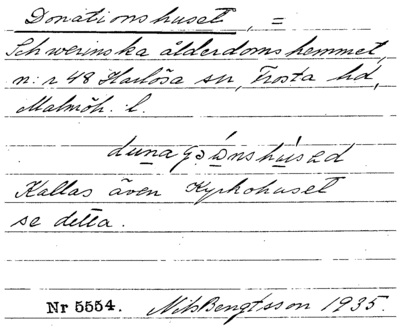 Donationshuset, =
Schwerinska ålderdomshemmet,
n:r 48 Harlösa sn, Frosta hd,
Malmöh. l.
Kallas även Kyrkohuset
se detta.
Nr 5554. Nils Bengtsson 1935.